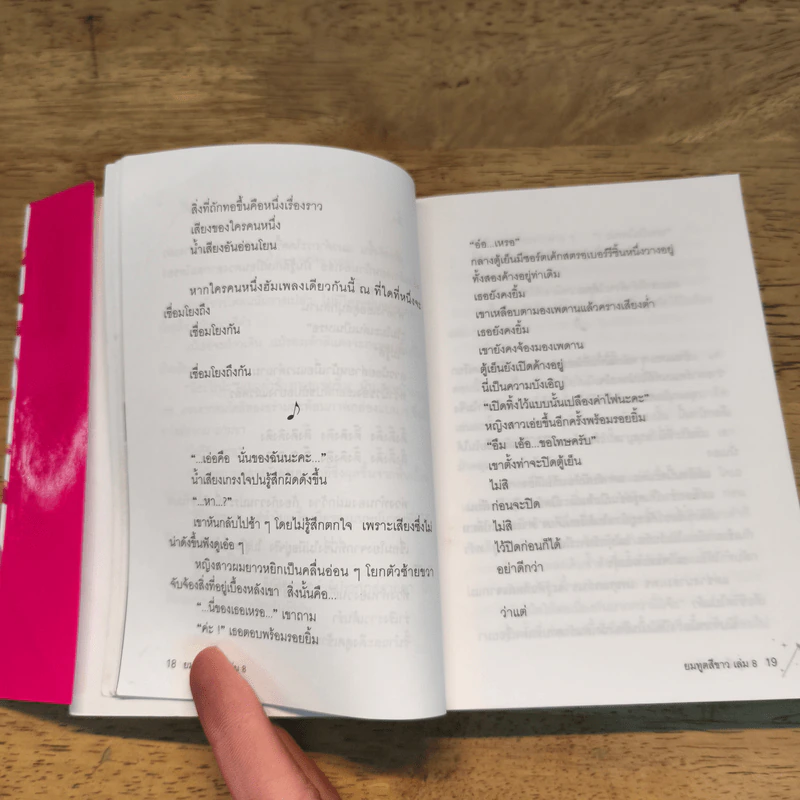 สิ่งที่ถักทอขึ้นคือหนึ่งเรื่องราว
เสียงของใครคนหนึ่ง
น้ำเสียงอันอ่อนโยน
หากใครคนหนึ่งฮัมเพลงเดียวกันนี้ ณ ที่ใดที่หนึ่งจะ
เชื่อมโยงถึง
เชื่อมโยงกัน
เชื่อมโยงถึงกัน
"...เอ่อคือ นั่นของฉันนะคะ..."
น้ำเสียงเกรงใจปนรู้สึกผิดดังขึ้น
"...หา...?"
เขาหันกลับไปช้า ๆ โดยไม่รู้สึกตกใจ เพราะเสียงซึ่งไม่
น่าดังขึ้นฟังดูเอ๋อ ๆ
หญิงสาวผมยาวหยิกเป็นคลื่นอ่อน ๆ โยกตัวซ้ายขวา
จับจ้องสิ่งที่อยู่เบื้องหลังเขา สิ่งนั้นคือ...
"...นี่ของเธอเหรอ..." เขาถาม
"ค่ะ !" เธอตอบพร้อมรอยยิ้ม
18 8
"อ๋อ...เหรอ"
กลางตู้เย็นมีชอร์ตเค้กสตรอเบอร์รี่ชิ้นหนึ่งวางอยู่
ทั้งสองค้างอยู่ท่าเดิม
เธอยังคงยิ้ม
เขาเหลือบตามองเพดานแล้วครางเสียงต่ำ
เธอยังคงยิ้ม
เขายังคงจ้องมองเพดาน
ตู้เย็นยังเปิดค้างอยู่
นี่เป็นความบังเอิญ
"เปิดทิ้งไว้แบบนั้นเปลืองค่าไฟนะคะ"
หญิงสาวเอ่ยขึ้นอีกครั้งพร้อมรอยยิ้ม
"อืม เอ้อ...ขอโทษครับ"
เขาตั้งท่าจะปิดตู้เย็น
ไม่สิ
ก่อนจะปิด
ไม่สิ
ไว้ปิดก่อนก็ได้
อย่าดีกว่า
ว่าแต่
ยมทูตสีขาว เล่ม 8 19